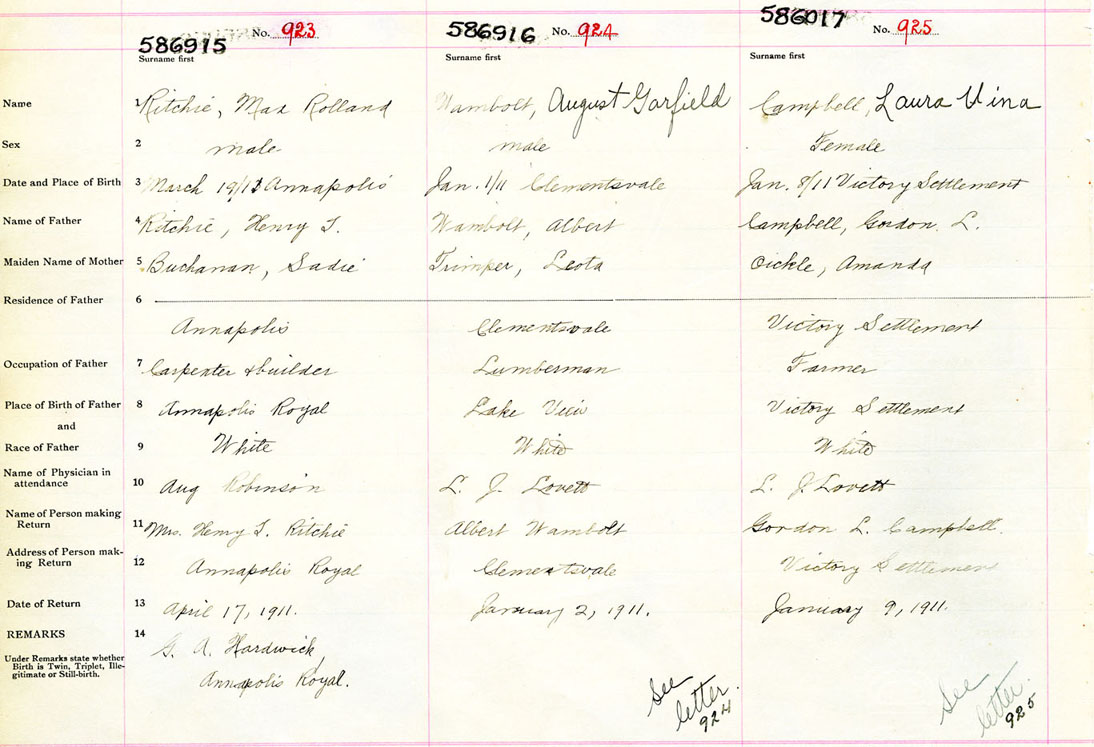 586915 No. 923 586916 No. 924 586017 No. 925
Surname first Surname first Surname first
Name 1 Ritchie, Max Rolland Wambolt, August Garfield Campbell, Laura Vina
Sex 2 male male Female
Date and Place of Birth 3 March 19/11 Annapolis Jan. 1/11 Clementsvale Jan. 8/11 Victory Settlement
Name of Father 4 Ritchie, Henry T. Wambolt, Albert Campbell, Gordon L.
Maiden Name of Mother 5 Buchanan, Sadie Trimper, Leota Oickle, Amanda
Residence of Father 6
Annapolis Clementsvale Victory Settlement
Occupation of Father 7 Carpenter & builder Lumberman Farmer
Place of Birth of Father 8 Annapolis Royal Lake View Victory Settlement
and
Race of Father 9 White White White
Name of Physician in
attendance 10 Aug Robinson L. J. Lovett L. J. Lovett
Name of Person making
Return 11 Mrs. Henry T. Ritchie Albert Wambolt Gordon L. Campbell.
Address of Person mak-
ing Return 12 Annapolis Royal Clementsvale Victory Settlement
Date of Return 13 April 17, 1911. January 2, 1911. January 9, 1911.
REMARKS 14 G. A. Hardwick,
Under Remarks state whether
Birth is Twin, Triplet, Ille-
gitimate or Still-birth.
Annapolis Royal.
See
letter
924
See
letter
925